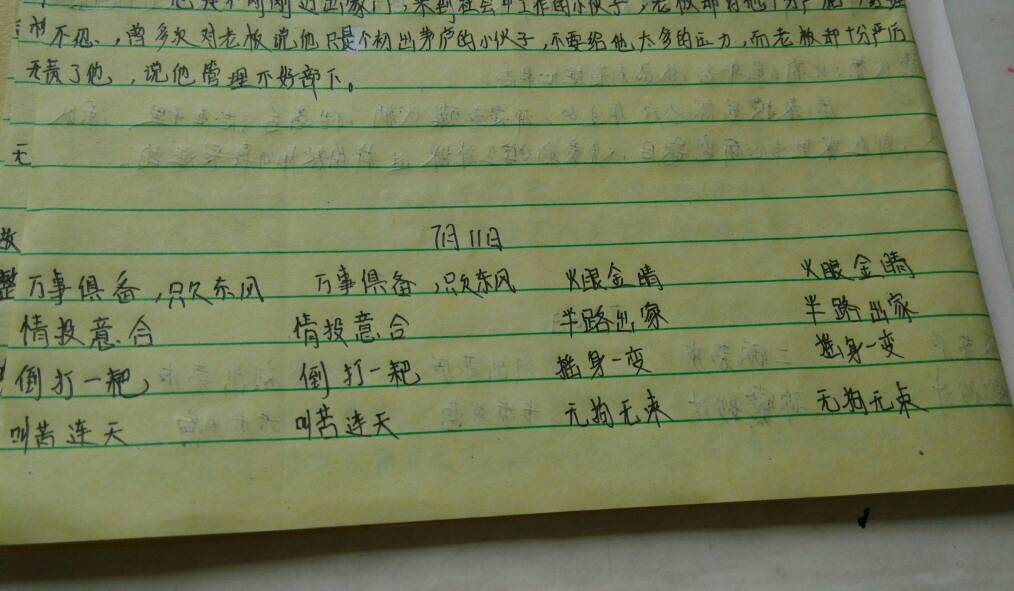 刚刚迈出家门,来到社会中工作的小伙子,老板却对他十分严厉
不忍,曾多次对老板说他只是个初出茅庐的小伙子,不要给他太多的压力,而老板却十分严厉
责了他,说他管理不好部下。
无
故
7月11日
整 万事俱备,只欠东风 万事俱备,只欠东风 火眼金睛 火眼金睛
情投意合 情投意合 半路出家 半路出家
倒打一耙, 倒打一耙 摇身一变 摇身一变
叫苦连天 叫苦连天 无拘无束 无拘无束